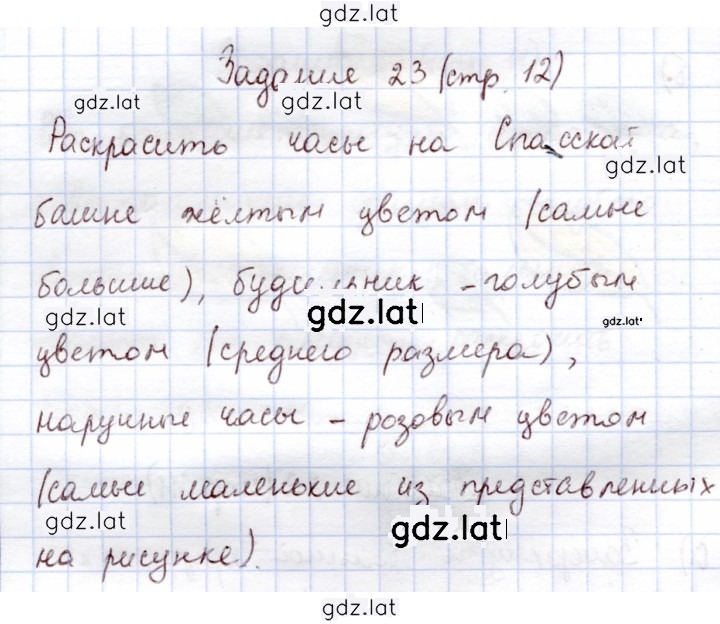 gdz.lat
Задание 23 (стр. 12)
gdz.lat
gdz.lat
Раскрасить часы на Спасской
gdz.lat
башне жёлтым цветом (самые
большие), будильник - голубым
gdz.lat
gdz.lat
gdz.lat
цветом (среднего размера),
наручные часы - розовым цветом
(самые маленькие из представленных
gdz.lat
gdz.lat
на рисунке).
gdz.lat